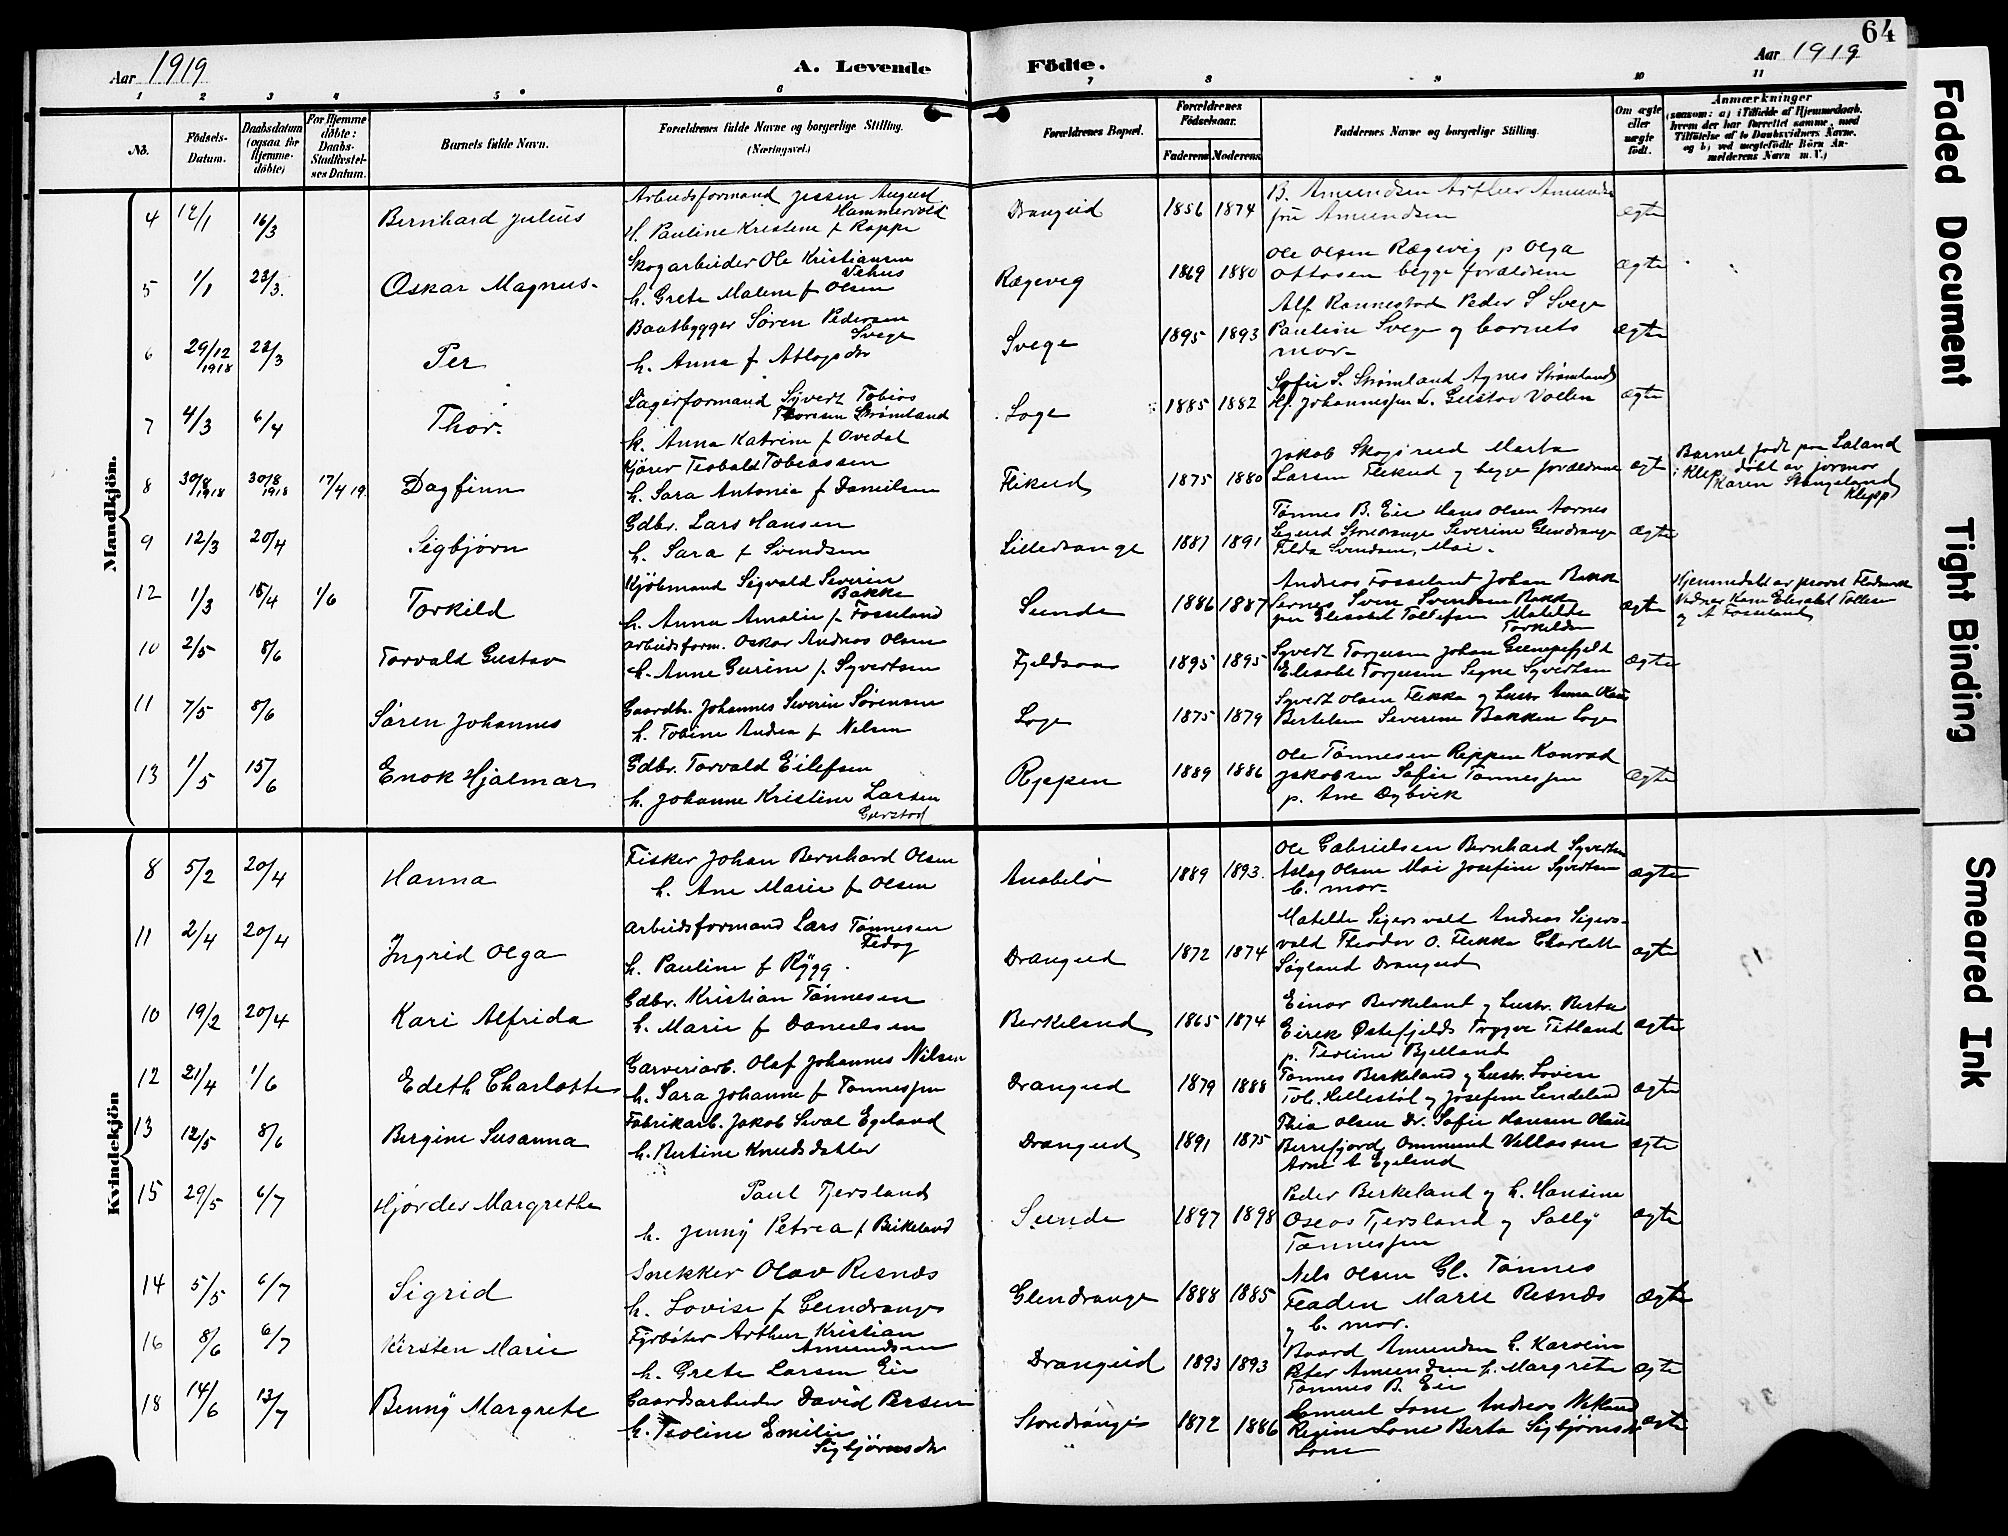 64
Aar 1919
A. Levende
Födte.
Aar 1919
1 2 3 4 5 6 7 8 9 10 11
No.
Födsels-
Datum.
Daabsdatum
(ogsaa for
Hjemme-
döbte)
For Hjemme
döbte:
Daabs-
Stadfæstel-
ses Datum.
Barnets fulde Navn.
Forældrenes fulde Navne og borgerlige Stilling.
(Næringsvei.)
Forældrenes Bopæl.
Forældrenes
Födselsaar.
Faderens Moderens
Faddernes Navne og borgerlige Stilling.
Om ægte
eller
uægte
født.
Anmærkninger
(saasom: a) i Tilfælde af Hjemmedaab,
hvem der har forrettet samme, med
Tilföielse af to Daabsvidners Navne.
og b) ved uægtefödte Börn An-
melderens Navn m. V.)
Mandkjön.
4 12/1 16/3 Bernhard Julius
Arbeidsformand Jessen August
Hammervold
H. Pauline Kristene f Roppe
Drangeid 1856 1874
B. Amundsen Arthur Amundse
fru Amundsen
ægte
5 1/1 23/3. Oskar Magnus-
Skogarbeider Ole Kristiansen
h. Grete Malene f Olsen
Rægevig 1869 1880
Ole Olsen Rægevig p Olga
Ottosen begge forældrene
ægte
6 29/12 1918 23/3 Per
Baatbygger Søren Pedersen
Svege
h. Anna f Atlogsdtr
Svege 1895 1893
Alf Rannestad Peder S Svege
Pauline Svege og barnets
mor-
ægte
7 4/3 6/4 Thor.
Lagerformand Syvert Tobias
Thoresen Strømland
h. Anna Katrine f Ovedal
Loge 1885 1882
Sofie S. Strømland Agnes Strømland
Hf. Johannessen L. Gustav Vollen
ægte
8 30/8 1918 30/8 1918 17/4 19. Dagfinn
Kjörer Teobald Tobiassen
h. Sara Antonie f Danielsen
Flikeid 1875 1880
Jakob Skogsrud Marta
Larsen Flikeid og begge forældrene
ægte
Barnet født paa Laland
i Klep, døbt av jormor
Karen Stangeland
Klepp
9 12/3 20/4 Sigbjørn
Gdbr. Lars Hansen
h. Sara f Svendsen
Lilledrange 1887 1891
Tønnes B. Eie Hans Olsen Aornes
Sigurd Storedrange Severine Glendrange
Tilda Svendsen, Moi.
Ægte
12 1/3 15/4 1/6 Torkild
Kjöbmand Sigvald Severin
Bakke
h. Anna Amalie f. Fosseland
Sunde 1886 1887
Andreas Fosseland Johan Bakke
Sven Svendsen Bakke
Elisabet Tollefsen Matilde
Torkildsen
ægte
Hjemmedøbt av provst
Vidner Karen Elisabet Tollefsen
og A Fosseland
10 2/5 8/6 Torvald Gustav
arbeidsform. Oskar Andreas Olsen
h. Anne Gurine f. Syvertsen
Fjeldsaa 1895 1895
Syvert Torjusen Johan
Elisabet Torjusen Signe Syvertsen
Ægte
11 7/5 8/6 Søren Johannes
Gaardbr. Johannes Severin Sørensen
h. Tobine Andrea f Nilsen
Loge 1875 1879
Syvert Olsen Flikka og hustr. Anna Olava
Bertelsen Severine Bakken Loge
13 1/5 15/6 Enok Hjalmar
Gdbr. Torvald Eilefsen
h. Johanne Kristine Larsen
Gurstad
Reppen 1889 1886
Ole Tønnesen Reppen Konrad
Jakobsen Sofie Tønnessen
p. Ane Dybvik
Ægte
Kvindekjön
8 5/2 20/4 Hanna
Fisker Johan Bernhard Olsen
h. Ane Marie f Olsen
Anabelø 1889 1893.
Ole Gabrielsen Bernhard Syvertsen
Aslag Olsen Moi Josefine Syvertsen
b. mor-
ægte
11 2/4 20/4 Ingrid Olga
Arbeidsformand Lars Tønnesen
Fedog
h. Pauline f Rÿgg.
Drangeid 1872 1874
Matilde Sigersvold Andreas Sigers-
vold Theodor O. Flikka Charlotte
Søyland Drangeid
ægte
10 19/2 20/4 Kari Alfrida
Gdbr. Kristian Tønnesen
h. Marie f Danielsen
Birkeland 1865 1874
Einar Birkeland og hustr. Berta
Eirek Østefjelds Trygve Titland
p. Teoline Bjelland
ægte
12 21/4 1/6 Edeth Charlotte
Garveriarb. Olaf Johannes Nilsen
h. Sara Johanne f Tønnessen
Drangeid 1879 1888
Tønnes Birkeland og hustr. Lovise
Tob. Hellestøl og Josefine Lindeland
ægte
13 12/5 8/6 Bergine Susanna
Fabrikarb. Jakob Sival Egeland
h. Bertine Knudsdatter
Drangeid 1891 1875
Thia Olsen Dr. Sofie Hansen Olaus
Berrefjord Ommund Vellassen
Arne A Egelund
ægte
15 29/5 6/7 Hjørdes Margrethe
Paul Tjersland
h. Jenny Petrea f Birkeland
Sunde 1897 1898
Peder Birkeland og h. Hansine
Oseas Tjersland og Sally
Tønnessen
ægte
14 5/5 6/7 Sigrid
Snekker Olav Risnæs
h. Lovise f Glendrange
Glendrange 1888 1885
Nils Olsen Gl. Tønnes
Feaden Marie Risnæs
og b. mor.
ægte
16 8/6 6/7 Kirsten Marie
Fyrbøter Arthur Kristian
Amundsen
h. Grete Larsen Eie
Drangeid 1893 1893
Baard Amundsen h. Karoline
Peter Amundsen h. Margrete
Tønnes B. Eie
ægte
18 14/6 13/7 Bennÿ Margrete
Gaardsarbeider David Persen
h. Teoline Emilie
Sigbjørnsdtr
Storedrange 1872 1886
Samuel Lone Andreas
Regine Lone Berta Sigbjørnsd
Lone
ægte
Faded Document
Tight Binding
Smeared Ink